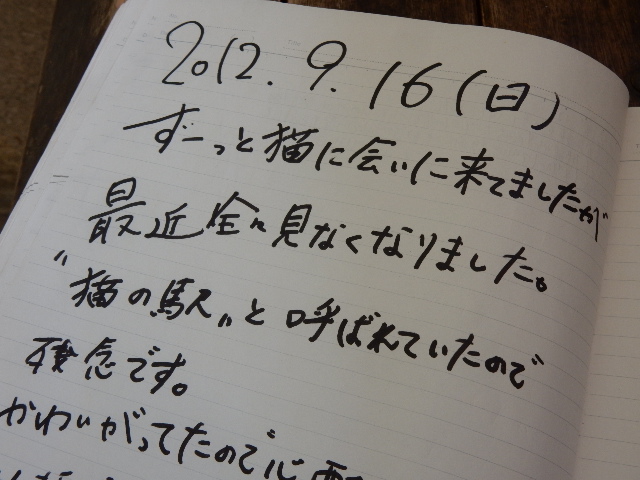 2012.9.16(日)
ずーっと猫に会いに来てましたが
最近全々見なくなりました。
"猫の駅"と呼ばれていたので
残念です。
かわいがってたので心配